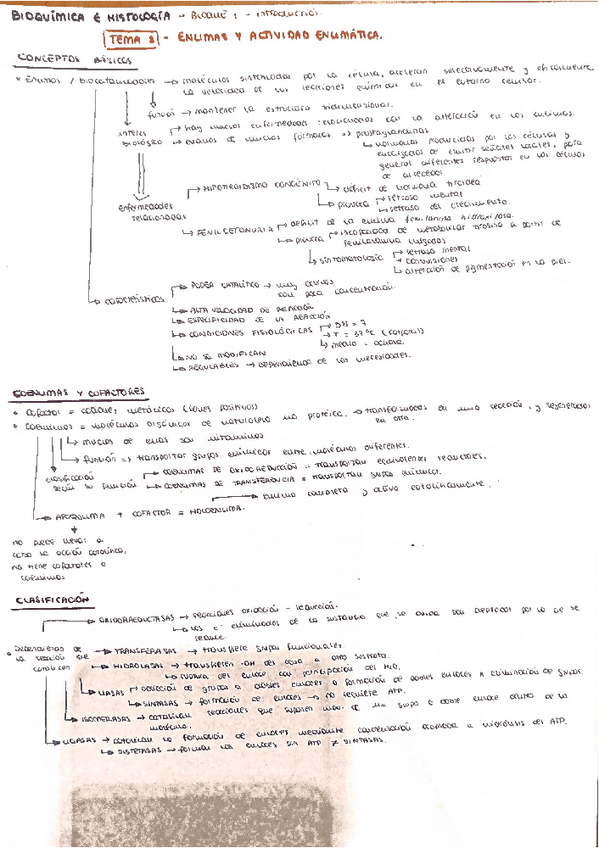 BIOQUÍMICA E HISTOLOGÍA - Bloque 1 - Introducción.
TEMA 3 - ENZIMAS Y ACTIVIDAD ENZIMÁTICA.
CONCEPTOS BÁSICOS
• Enzimas / biocatalizadores → moléculas sintetizadas por la célula, aceleran selectivamente y eficazmente
la velocidad de sus reacciones químicas en el entorno celular.
función → mantener la estructura tridimensional.
interés biológico
→ hay muchas enfermedades relacionadas con la alteración en las enzimas.
→ dianas de muchos fármacos → prostaglandinas
↳ hormonas producidas por las células y
encargadas de emitir señales locales, para
generar diferentes respuestas en las células
de alrededor
enfermedades relacionadas
→ HIPOTIROIDISMO CONGÉNITO → déficit de hormona tiroidea
↳ provoca → retraso mental
↳ retraso del crecimiento.
↳ FENILCETONURIA → déficit de la enzima fenilalanina hidroxilasa.
↳ provoca → incapacidad de metabolizar tirosina a partir de
fenilalanina
↳ sintomatología → retraso mental
→ convulsiones
↳ alteración de pigmentación en la piel.
características
→ PODER CATALÍTICO → muy activas
aun poca concentración.
→ ALTA VELOCIDAD DE REACCIÓN
→ ESPECIFICIDAD DE LA REACCIÓN
→ CONDICIONES FISIOLÓGICAS → pH = 7
→ T = 37ºC (corporal)
↳ medio = acuoso.
→ NO SE MODIFICAN
→ REGULABLES → dependiendo de las necesidades.
COENZIMAS Y COFACTORES
• Cofactor = cationes metálicos (iones positivos)
• Coenzimas = moléculas orgánicas de naturaleza no proteica. → transformadas en una reacción, y regeneradas
en otra.
↳ muchas de ellas son vitaminas
↳ función → transportar grupos químicos entre moléculas diferentes.
clasificación según su función
→ COENZIMAS DE OXIDOREDUCCIÓN = TRANSPORTAN equivalentes reductores.
↳ COENZIMAS DE TRANSFERENCIA = TRANSPORTAN grupos químicos.
→ enzima completa y activa catalíticamente.
↳ APOENZIMA + COFACTOR = HOLOENZIMA.
no puede llevar a
cabo la acción catalítica,
no tiene cofactores o
coenzimas
CLASIFICACIÓN
→ OXIDORREDUCTASAS → reacciones oxidación - reducción.
↳ los e⁻ eliminados de la sustancia que se oxida son aceptados por la que se
reduce.
• Dependiendo de
la reacción que
catalicen
→ TRANSFERASAS → transfiere grupos funcionales.
→ HIDROLASAS → transfieren -OH del agua a otro sustrato.
↳ rotura del enlace con participación del H₂O.
→ LIASAS → adición de grupos a dobles enlaces o formación de dobles enlaces x eliminación de grupos.
↳ SINTASAS → formación de enlaces → no requiere ATP.
→ ISOMERASAS → catalizan reacciones que suponen mov. de un grupo o doble enlace dentro de la
molécula.
→ LIGASAS → catalizan la formación de enlaces mediante condensación acoplada a hidrólisis del ATP.
↳ SINTETASAS → forman los enlaces sin ATP ≠ SINTASAS.